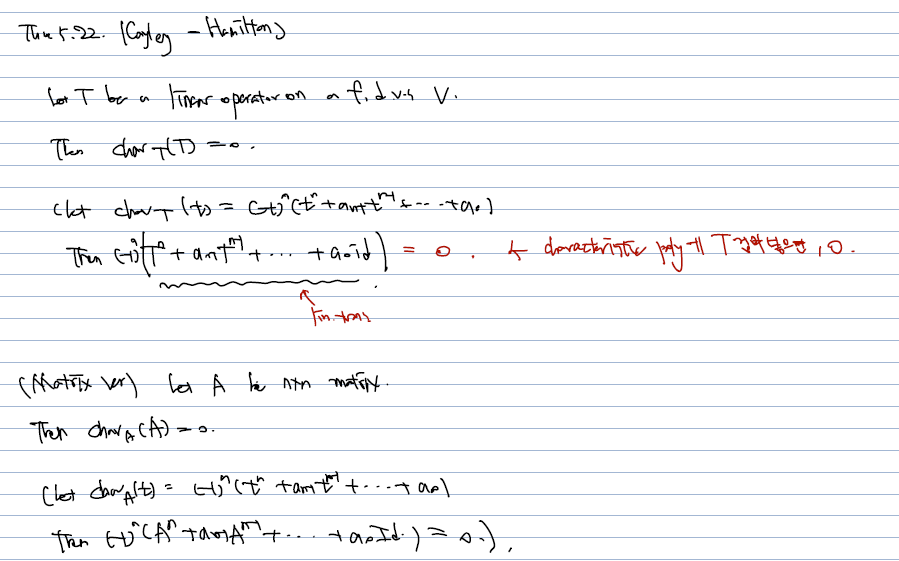 Thm 5.22. (Cayley - Hamilton)
Let T be a linear operator on a f.d v.s V.
Then char_T(T) = 0.
(Let char_T(t) = (-1)^n(t^n + a_{n-1}t^{n-1} + ... + a_0)
Then (-1)^n(T^n + a_{n-1}T^{n-1} + ... + a_0 id) = 0. ← characteristic poly에 T 집어넣으면, 0.
↑
lin. trans
(Matrix ver) Let A be n×n matrix.
Then char_A(A) = 0.
(Let char_A(t) = (-1)^n(t^n + a_{n-1}t^{n-1} + ... + a_0)
Then (-1)^n(A^n + a_{n-1}A^{n-1} + ... + a_0 Id.) = 0.).